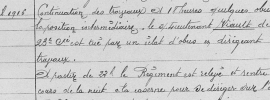 1916 Continuation des travaux et 18 heures quelques obus
la position intermédiaire, le s/lieutenant Hiault de
22e Cie est tué par un éclat d'obus en dirigeant
travaux.
A partir de 22h le Régiment est relevé et rentre
cours de la nuit à la caserne pour se diriger sur l